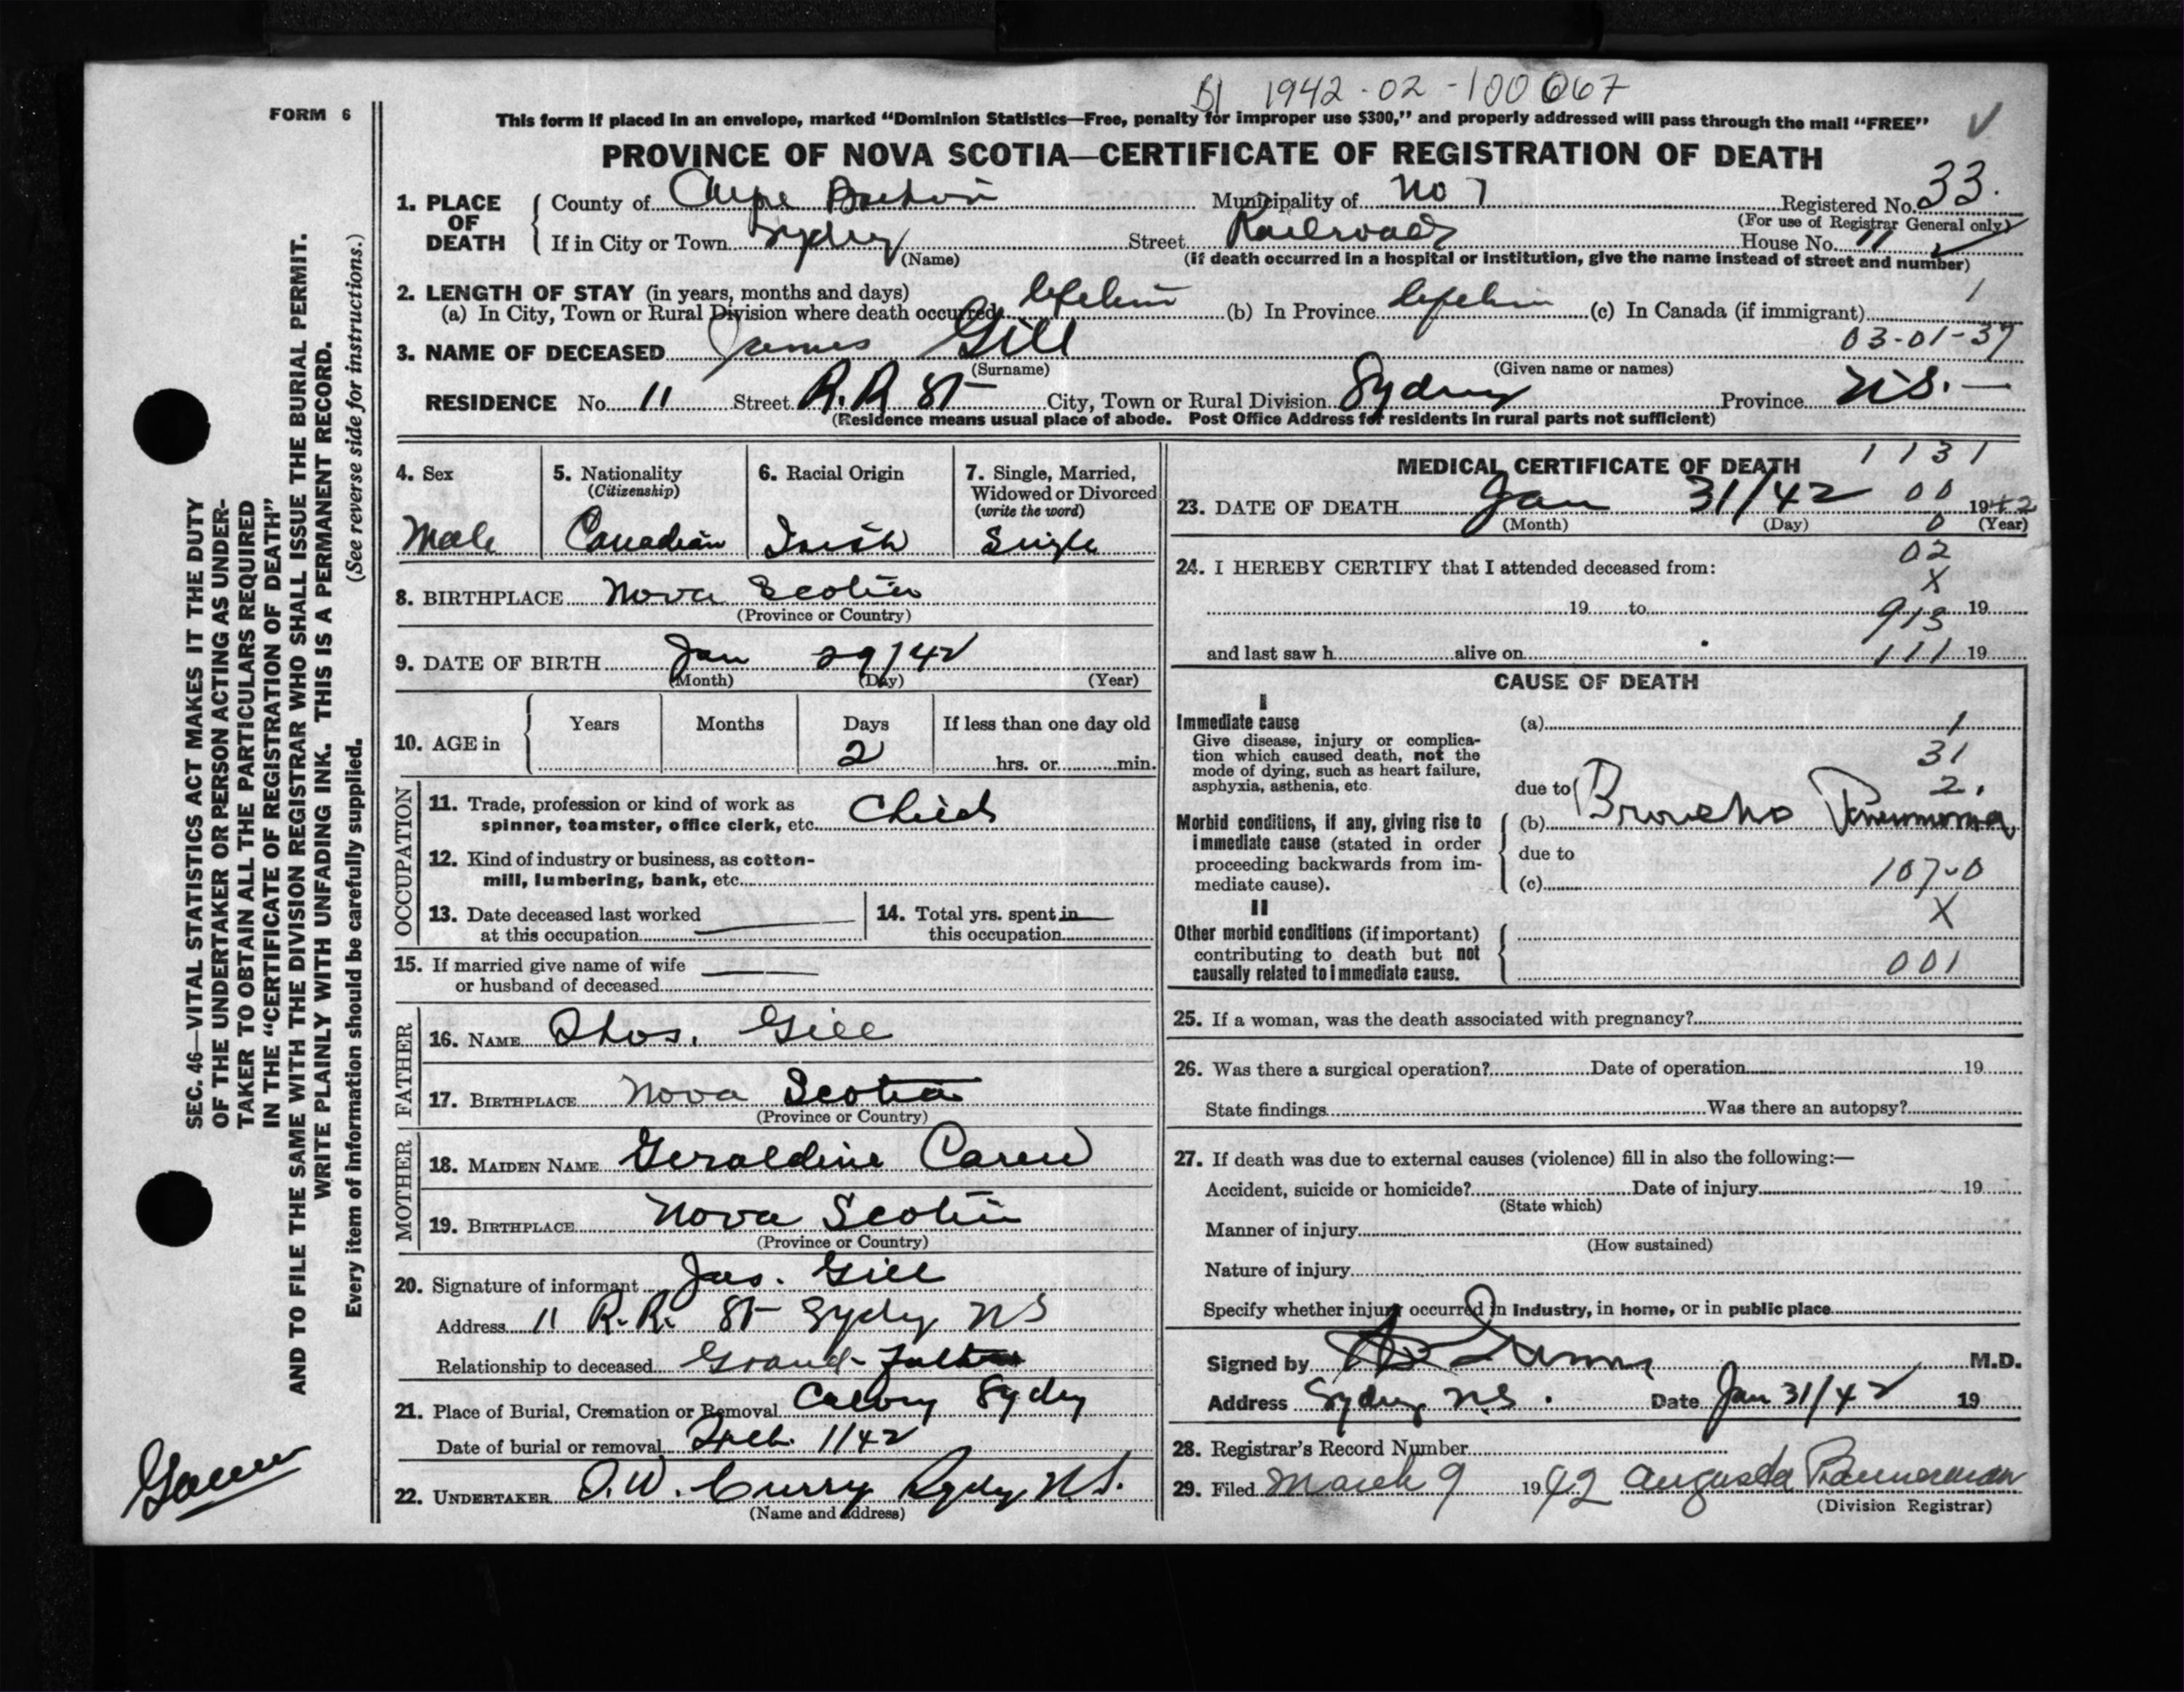 B1 1942-02-100067
FORM 6
This form if placed in an envelope, marked "Dominion Statistics—Free, penalty for improper use $300," and properly addressed will pass through the mail "FREE"
PROVINCE OF NOVA SCOTIA—CERTIFICATE OF REGISTRATION OF DEATH
1. PLACE OF DEATH
County of Cape Breton Municipality of No 7 Registered No. 33.
(For use of Registrar General only)
If in City or Town Sydney Street Railroad House No. 11
(Name) (if death occurred in a hospital or institution, give the name instead of street and number)
2. LENGTH OF STAY (in years, months and days)
(a) In City, Town or Rural Division where death occurred lifetime (b) In Province lifetime (c) In Canada (if immigrant) 1
03-01-37
3. NAME OF DECEASED James Gill
(Surname) (Given name or names)
RESIDENCE No. 11 Street R.R St City, Town or Rural Division Sydney Province N.S. —
(Residence means usual place of abode. Post Office Address for residents in rural parts not sufficient)
4. Sex
Male
5. Nationality
(Citizenship)
Canadian
6. Racial Origin
Irish
7. Single, Married,
Widowed or Divorced
(write the word)
Single
8. BIRTHPLACE Nova Scotia
(Province or Country)
9. DATE OF BIRTH Jan 29/42
(Month) (Day) (Year)
10. AGE in
Years Months Days If less than one day old
2 hrs. or min.
OCCUPATION
11. Trade, profession or kind of work as
spinner, teamster, office clerk, etc. Child
12. Kind of industry or business, as cotton-
mill, lumbering, bank, etc.
13. Date deceased last worked
at this occupation
14. Total yrs. spent in
this occupation
15. If married give name of wife
or husband of deceased
FATHER
16. NAME Thos. Gill
17. BIRTHPLACE Nova Scotia
(Province or Country)
MOTHER
18. MAIDEN NAME Geraldine Carew
19. BIRTHPLACE Nova Scotia
(Province or Country)
20. Signature of informant Jas. Gill
Address 11 R.R. St Sydney NS
Relationship to deceased Grand-father
21. Place of Burial, Cremation or Removal Calvary Sydney
Date of burial or removal Feb. 1/42
22. UNDERTAKER O.W. Curry Sydney N.S.
(Name and address)
MEDICAL CERTIFICATE OF DEATH 1131
23. DATE OF DEATH Jan 31/42 00 1942
(Month) (Day) 0 (Year)
02
24. I HEREBY CERTIFY that I attended deceased from: X
19 to 913 19
and last saw h alive on 111 19
CAUSE OF DEATH
I
Immediate cause (a) 1
Give disease, injury or complica-
tion which caused death, not the
mode of dying, such as heart failure,
asphyxia, asthenia, etc.
31
due to 2.
Morbid conditions, if any, giving rise to
immediate cause (stated in order
proceeding backwards from im-
mediate cause).
(b) Broncho Pneumonia
due to
(c) 107-0
II
X
Other morbid conditions (if important)
contributing to death but not
causally related to immediate cause.
001
25. If a woman, was the death associated with pregnancy?
26. Was there a surgical operation? Date of operation 19
State findings Was there an autopsy?
27. If death was due to external causes (violence) fill in also the following:—
Accident, suicide or homicide? Date of injury 19
(State which)
Manner of injury
(How sustained)
Nature of injury
Specify whether injury occurred in industry, in home, or in public place
Signed by M.D.
Address Sydney N.S. Date Jan 31/42 19
28. Registrar's Record Number
29. Filed March 9 1942 Augusta Bannerman
(Division Registrar)
SEC. 46—VITAL STATISTICS ACT MAKES IT THE DUTY
OF THE UNDERTAKER OR PERSON ACTING AS UNDER-
TAKER TO OBTAIN ALL THE PARTICULARS REQUIRED
IN THE "CERTIFICATE OF REGISTRATION OF DEATH"
AND TO FILE THE SAME WITH THE DIVISION REGISTRAR WHO SHALL ISSUE THE BURIAL PERMIT.
WRITE PLAINLY WITH UNFADING INK. THIS IS A PERMANENT RECORD.
Every item of information should be carefully supplied. (See reverse side for instructions.)